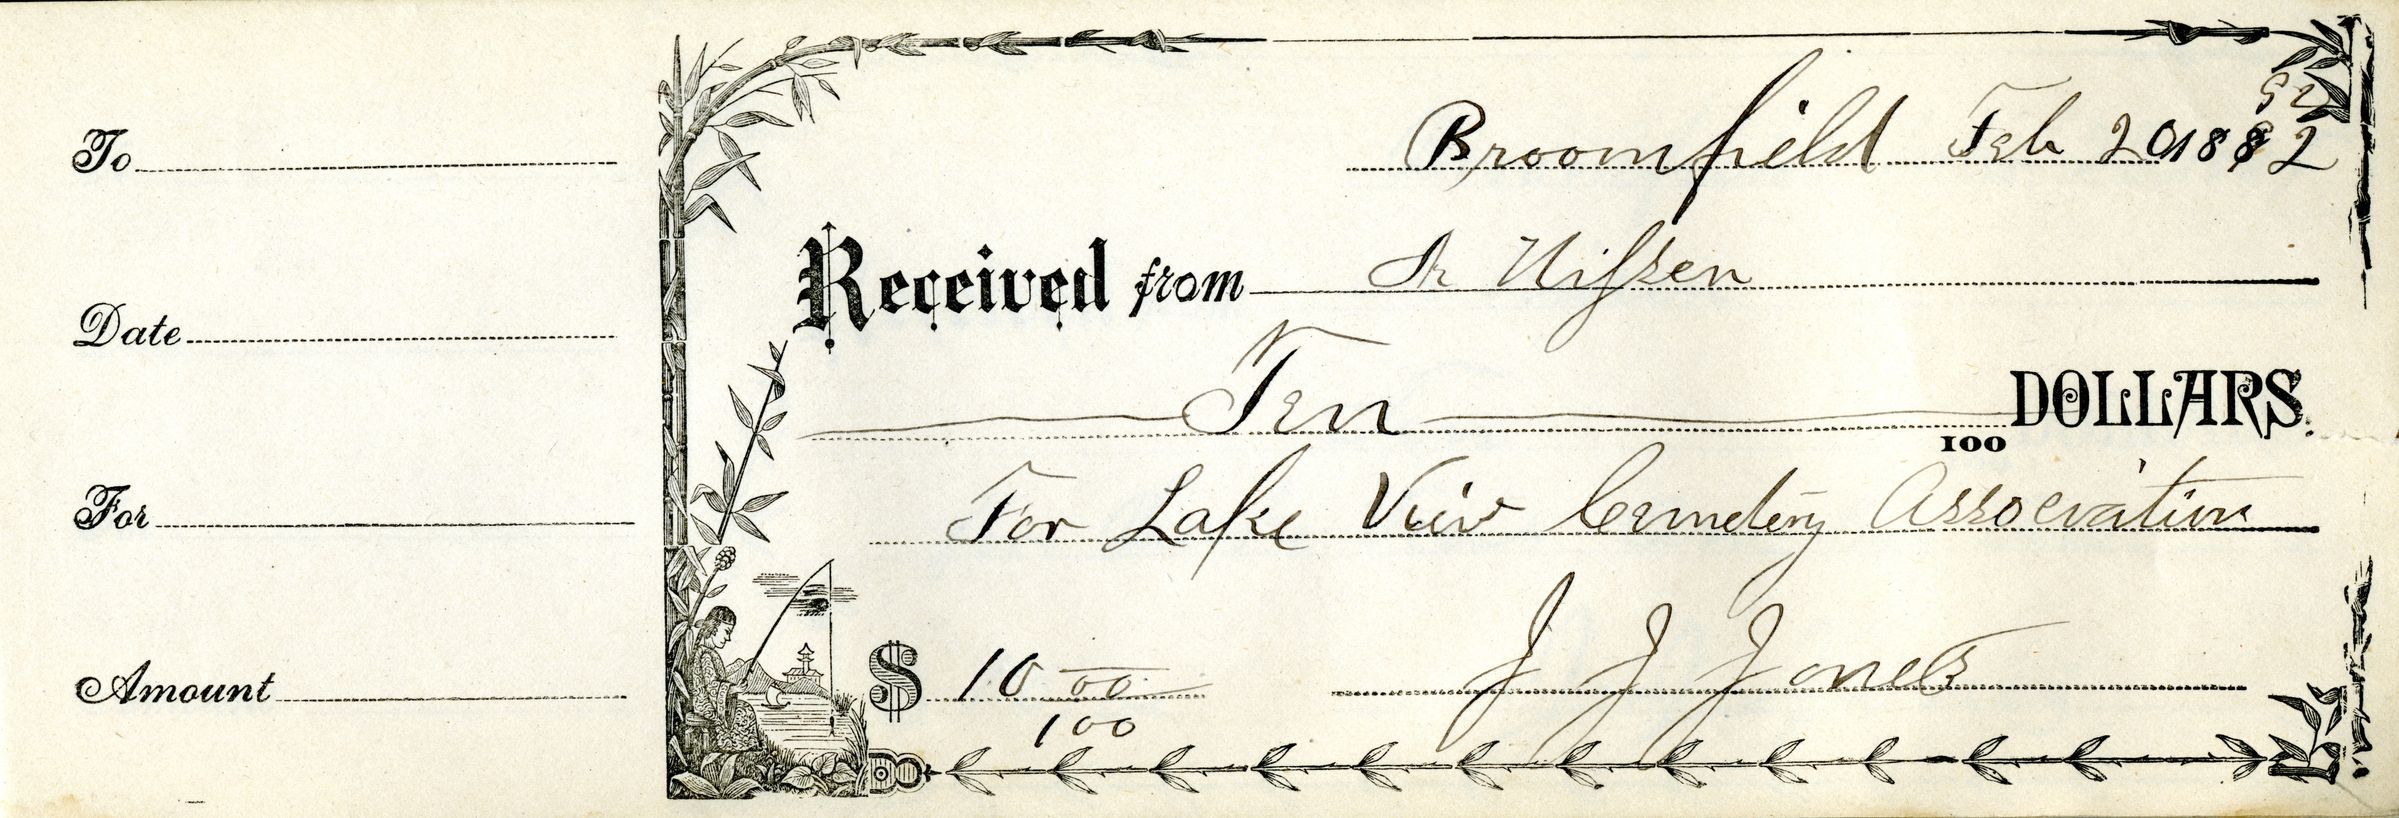 To
Date
For
Amount
92
Broomfield Feb 20 1882
Received from Nissen
Ten DOLLARS.
100
For Lake View Cemetery Association
$ 10 00/100
J J Jones